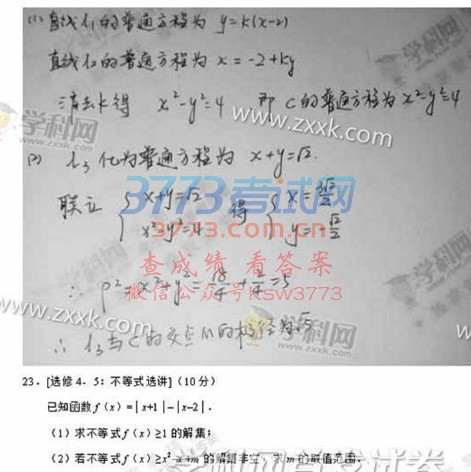 (1) 直线l₁的普通方程为 y=k(x-2)
直线l₂的普通方程为 x=-2+ky
消去k得 x²-y²=4 即 C的普通方程为 x²-y²=4
学科网
www.zxxk.com
(2) l₃化为普通方程为 x+y=√2.
3773考试网
www.3773.com.cn
联立 { x+y=√2 x²-y²=4 得 { x=3√2/2 y=-√2/2
查成绩 看答案
微信公众号ksw3773
∴ ρ²=x²+y²=18/4+2/4=5
∴ l₃与C的交点M的极径为√5
www.zxxk.com
23．[选修4－5：不等式选讲]（10分）
已知函数f（x）=│x+1│–│x–2│．
（1）求不等式f（x）≥1的解集；
（2）若不等式f（x）≥x²–x+m的解集非空，求m的取值范围．